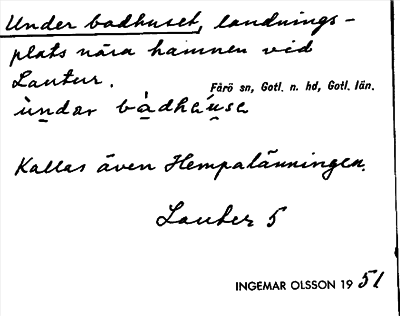 Under badhuset, landnings-
plats nära hamnen vid
Lautur.
Fårö sn, Gotl. n. hd, Gotl. län.
ùndar bàdhǻusa
Kallas även Hempalänningen.
Lauter 5
INGEMAR OLSSON 19 51